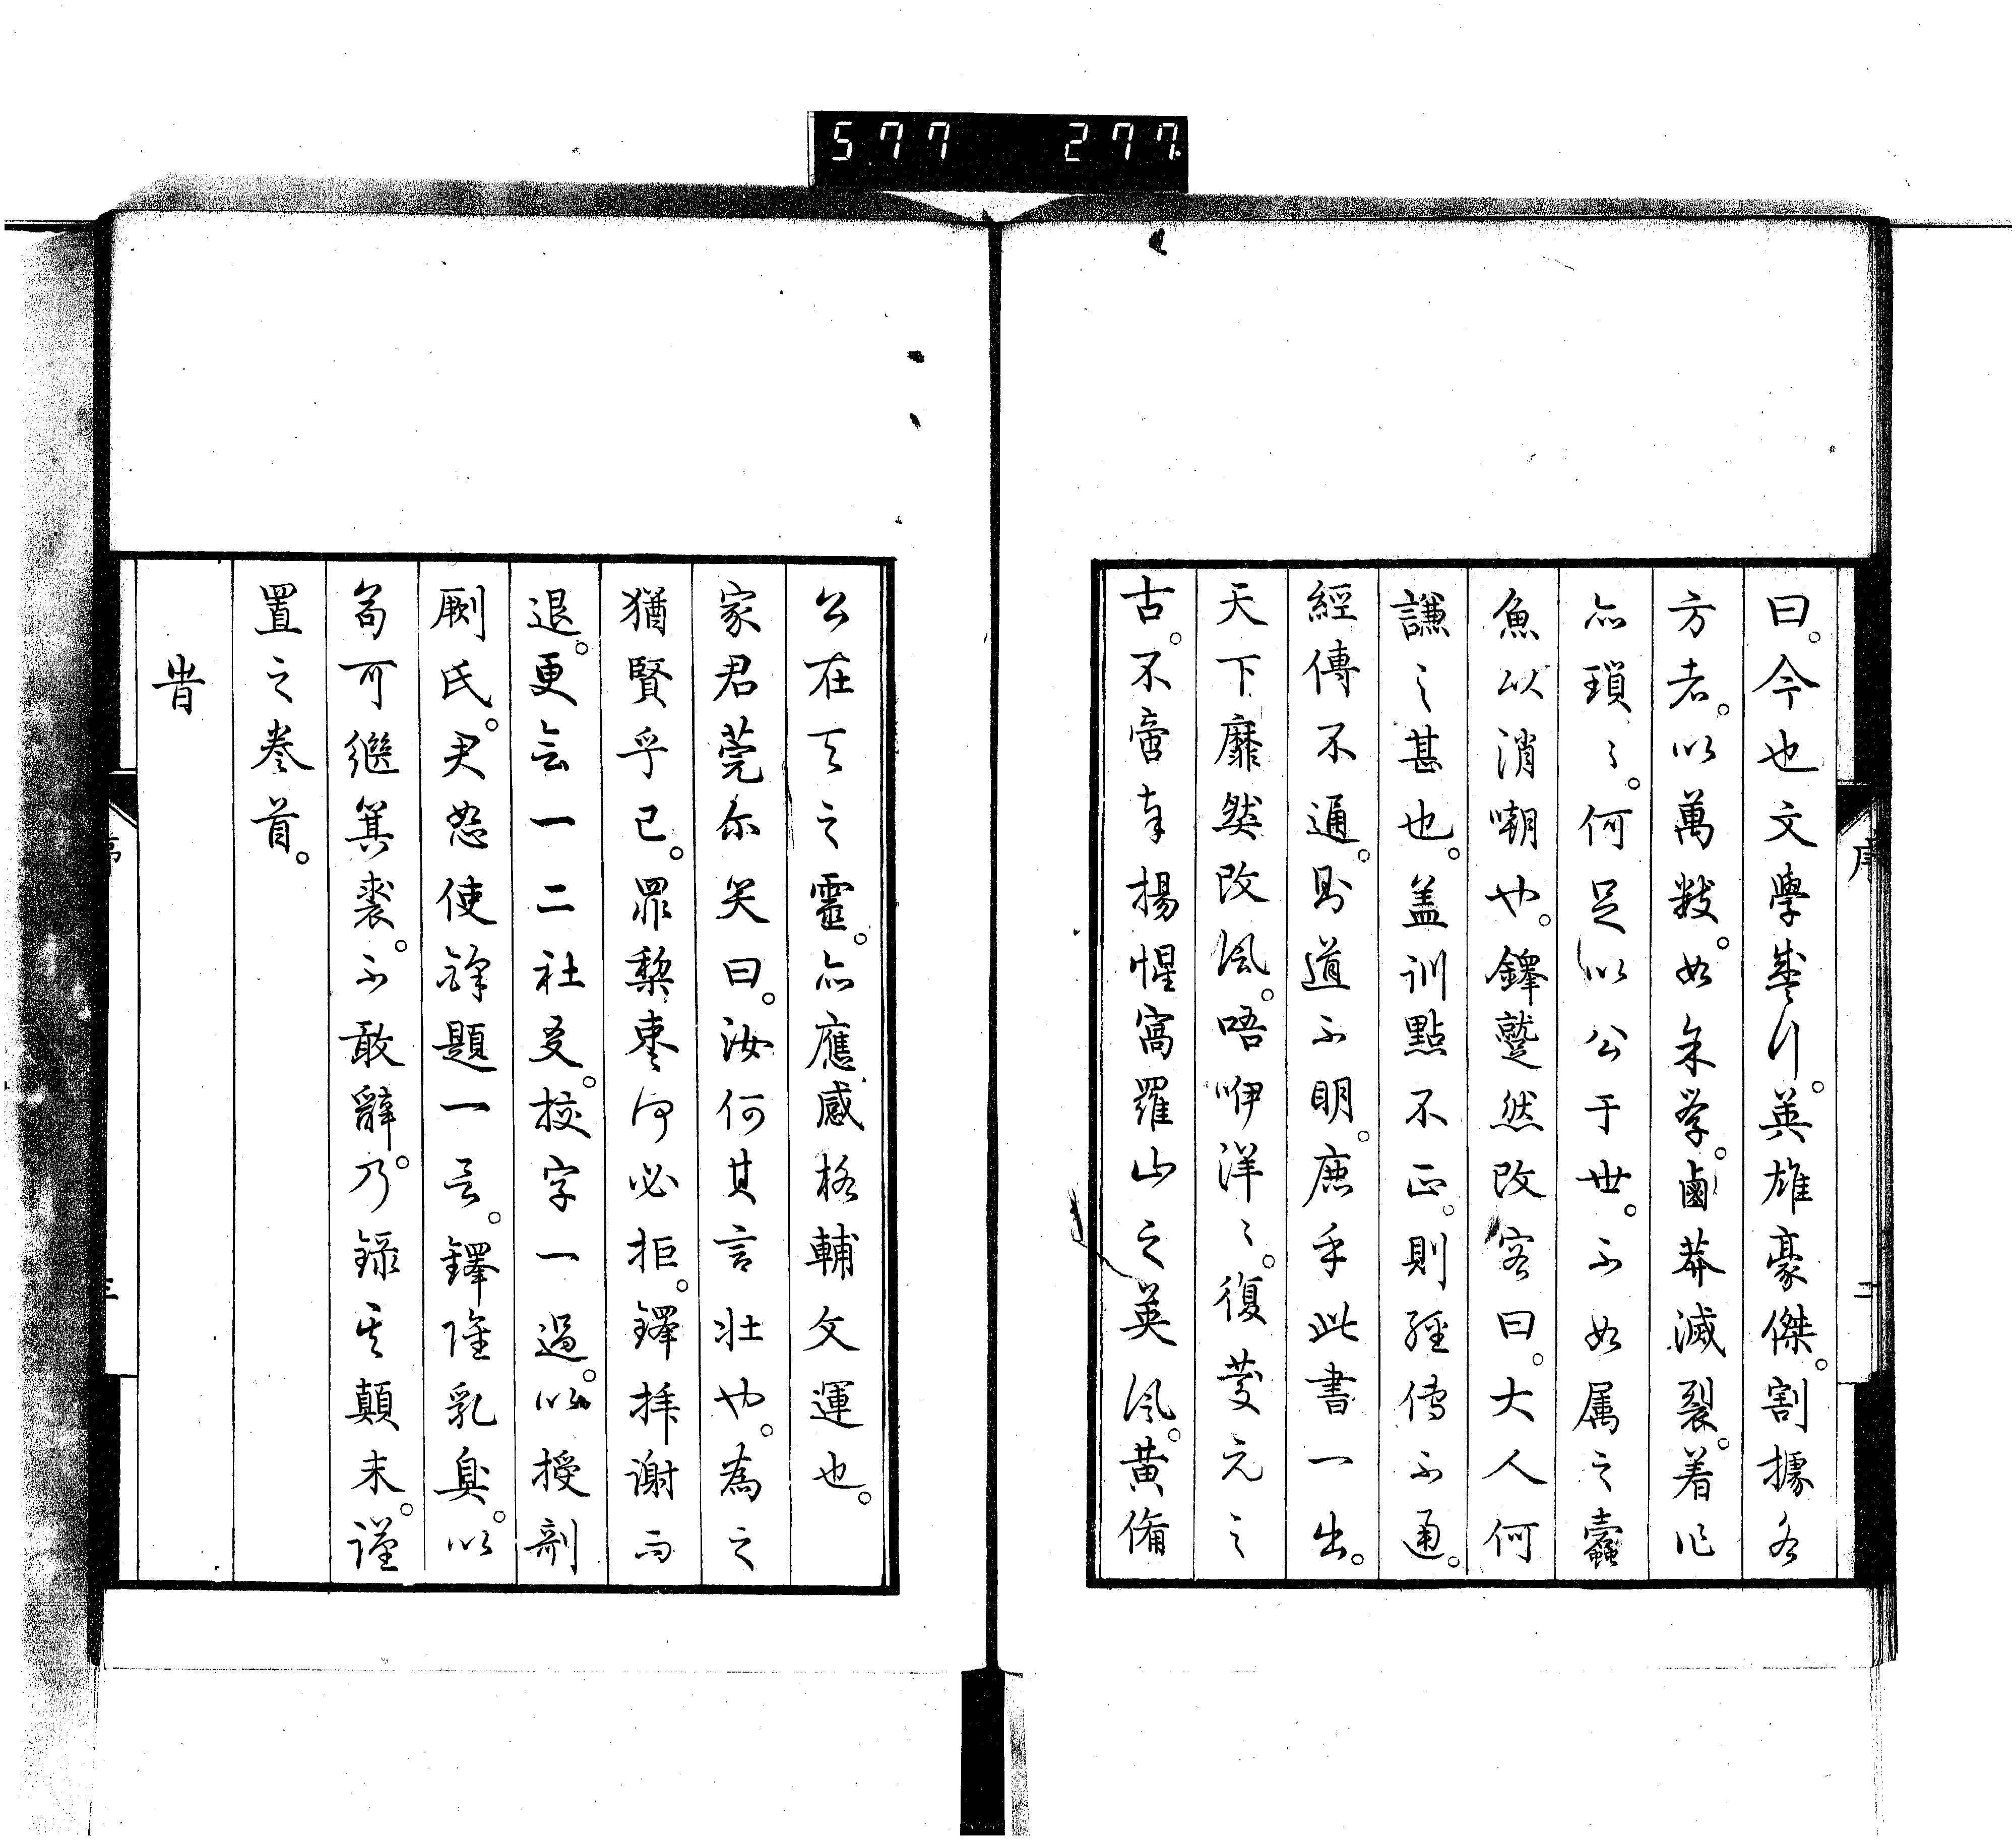 577 277
序
二
曰。今也文學盛行。英雄豪傑。割據各
方者。以萬數。如余學。鹵莽滅裂。着作
亦瑣々。何足以公于世。不如属之蠹
魚以消嘲也。鐸蹵然改容曰。大人何
謙之甚也。盖訓點不正。則經傳不通。
經傳不通。則道不明。庶乎此書一出。
天下靡然改風。唔咿洋々。復慶元之
古。不啻奉揚惺窩羅山之英風。黄備
公在天之靈。亦應感格輔文運也。
家君莞尓笑曰。汝何其言壮也。為之
猶賢乎已。罪梨棗何必拒。鐸拝謝而
退。更会一二社友。挍字一過。以授剞
劂氏。尹恕使鐸題一言。鐸隆乳臭。以
苟可繼箕裘。不敢辭。乃録其顛末。謹
置之巻首。
旹
序
三